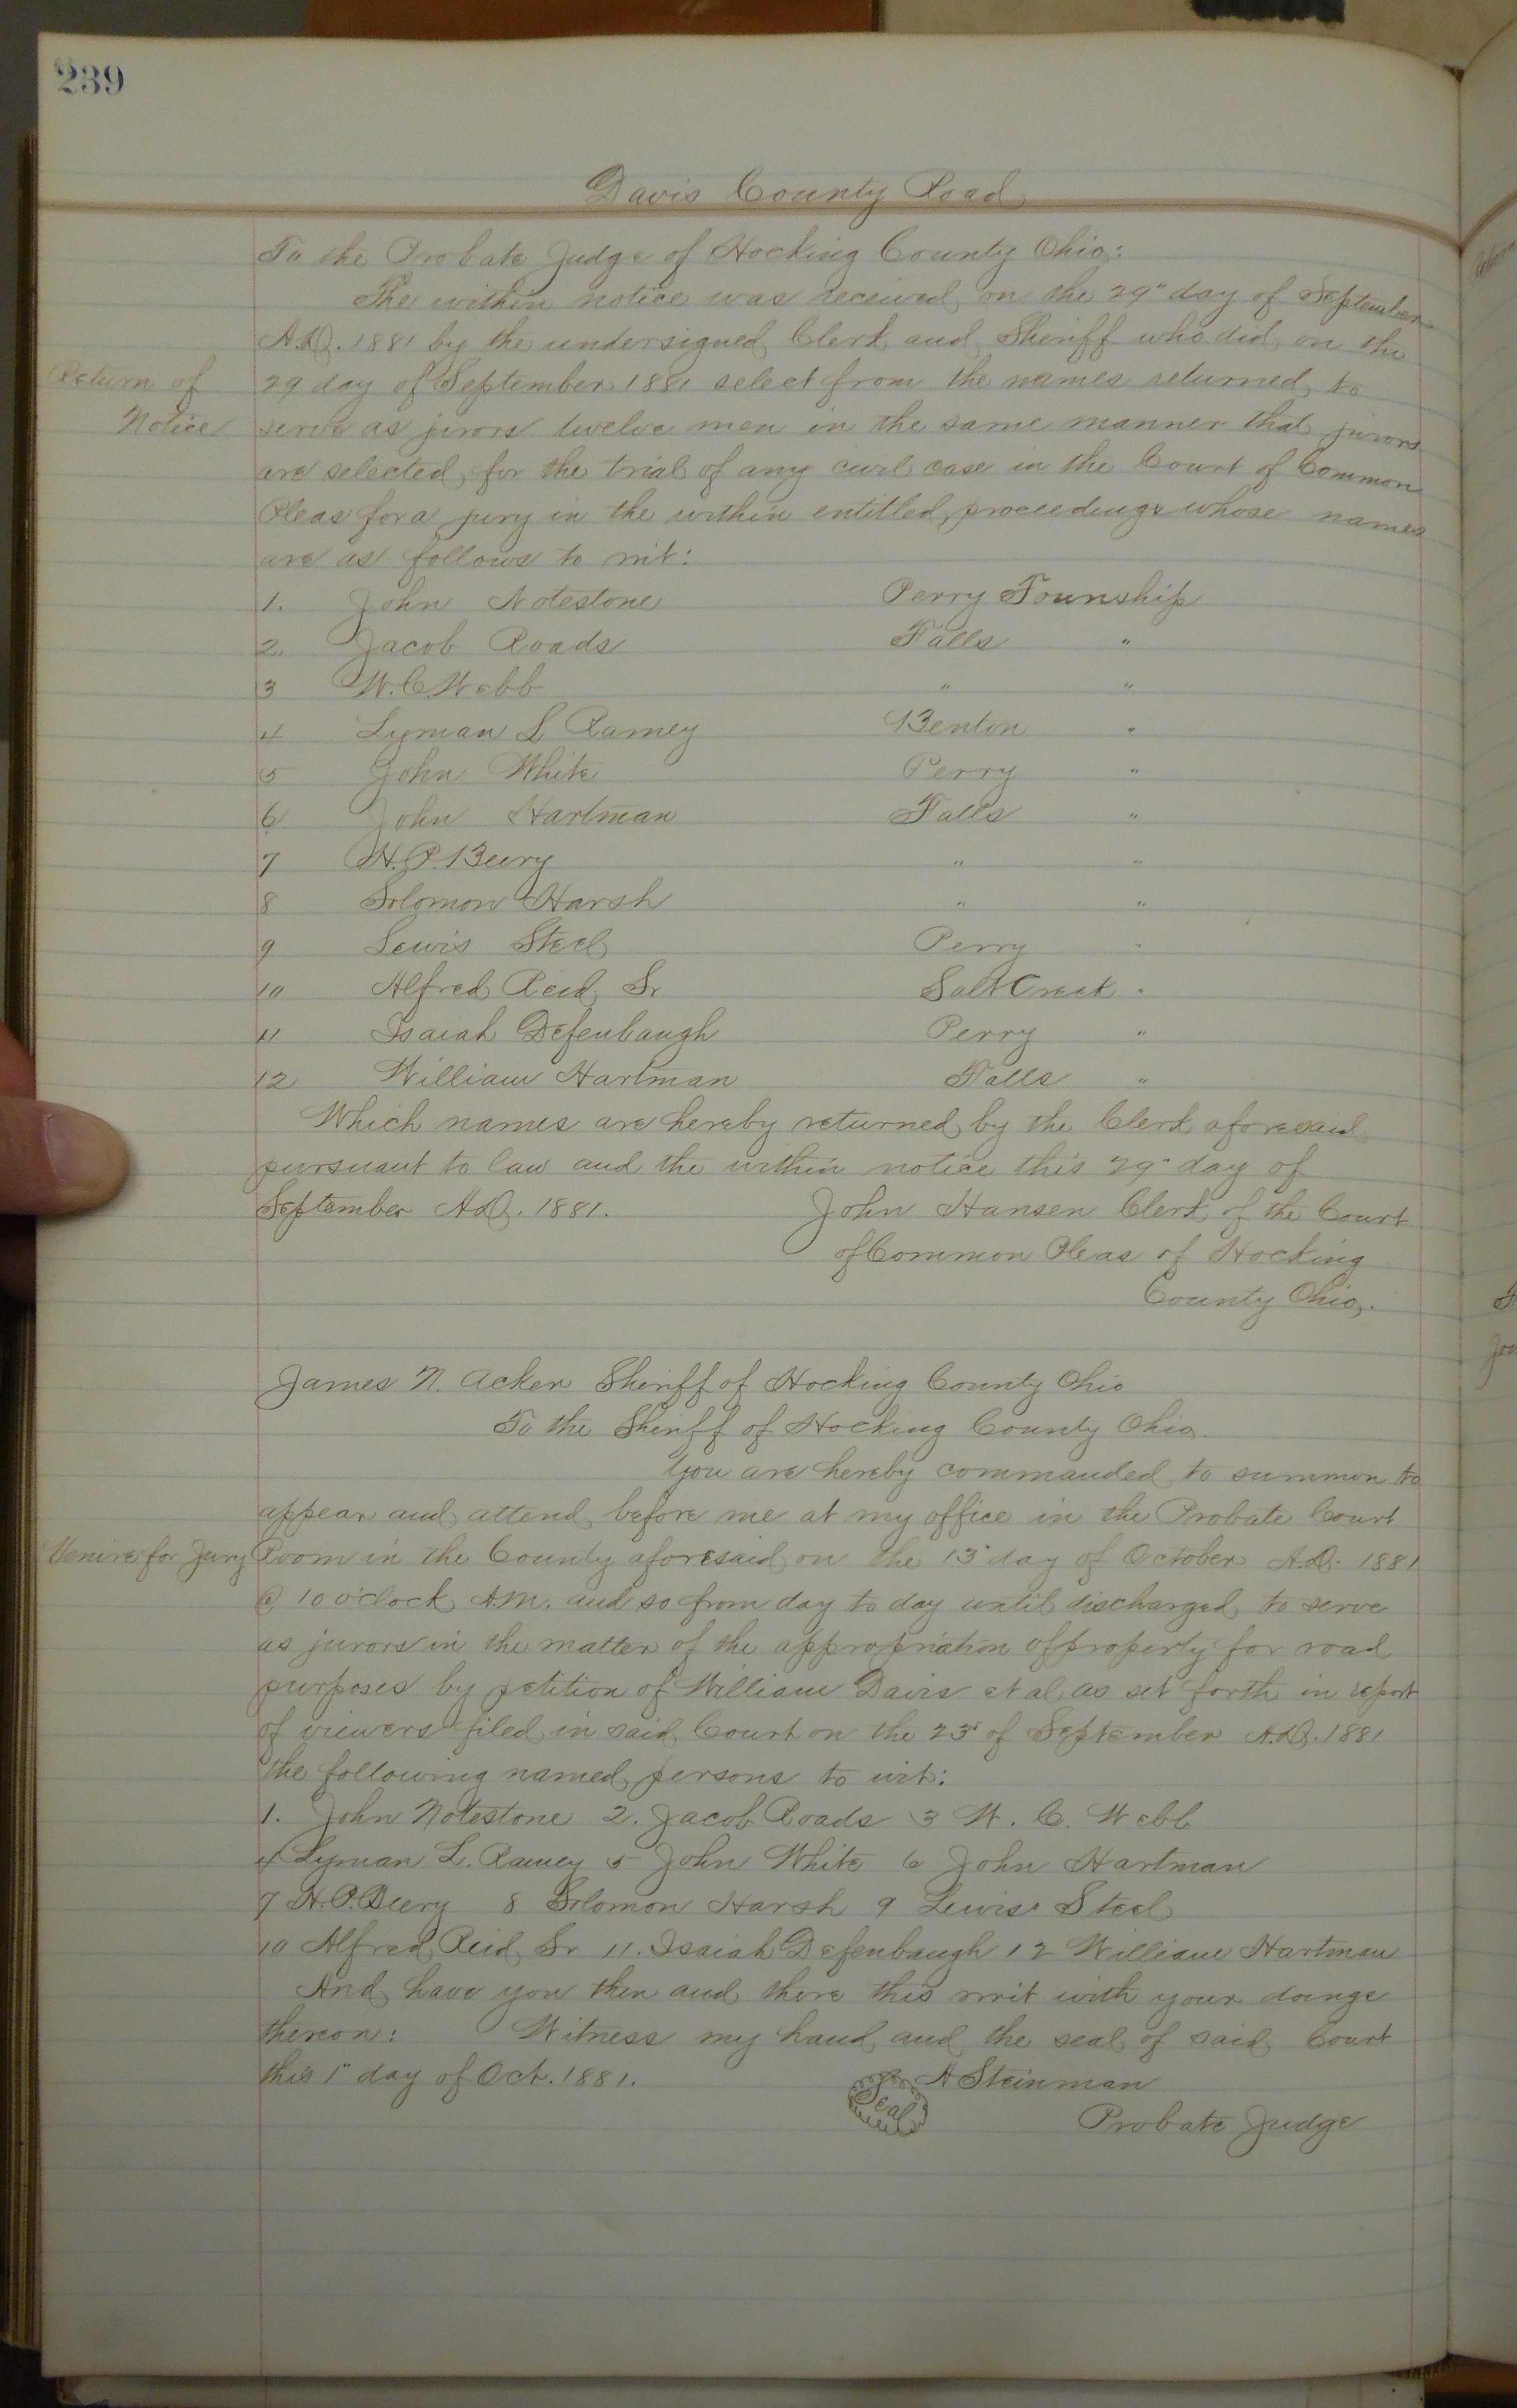 239
Davis County Road
To the Probate Judge of Hocking County Ohio:
The within notice was received on the 29" day of September
A.D. 1881 by the undersigned Clerk and Sheriff who did on the
Return of 29 day of September 1881 select from the names returned to
Notice serve as jurors twelve men in the same manner that jurors
are selected for the trial of any civil case in the Court of Common
Pleas for a jury in the within entitled proceedings whose names
are as follows to wit:
1. John Notestone Perry Township
2. Jacob Roads Falls "
3 W. C. Webb " "
4 Lyman L Ramey Benton "
5 John White Perry "
6 John Hartman Falls "
7 H. P. Beery " "
8 Solomon Harsh " "
9 Lewis Steel Perry "
10 Alfred Reid Sr Salt Creek "
11 Isaiah Defenbaugh Perry "
12 William Hartman Falls "
Which names are hereby returned by the Clerk aforesaid
pursuant to law and the within notice this 29" day of
September A.D. 1881. John Hansen Clerk of the Court
of Common Pleas of Hocking
County Ohio.
James N. Acker Sheriff of Hocking County Ohio
To the Sheriff of Hocking County Ohio
You are hereby commanded to summon to
appear and attend before me at my office in the Probate Court
Venire for Jury Room in the County aforesaid on the 13" day of October A.D. 1881
@ 10 o'clock A.M. and so from day to day until discharged to serve
as jurors in the matter of the appropriation of property for road
purposes by petition of William Davis et al as set forth in report
of viewers filed in said Court on the 23" of September A.D. 1881
the following named persons to wit:
1. John Notestone 2. Jacob Roads 3 W. C. Webb
4 Lyman L. Ramey 5 John White 6 John Hartman
7 H. P. Beery 8 Solomon Harsh 9 Lewis Steel
10 Alfred Reid Sr 11. Isaiah Defenbaugh 12 William Hartman
And have you then and there this writ with your doings
thereon: Witness my hand and the seal of said Court
this 1" day of Oct. 1881. Seal A Steinman
Probate Judge